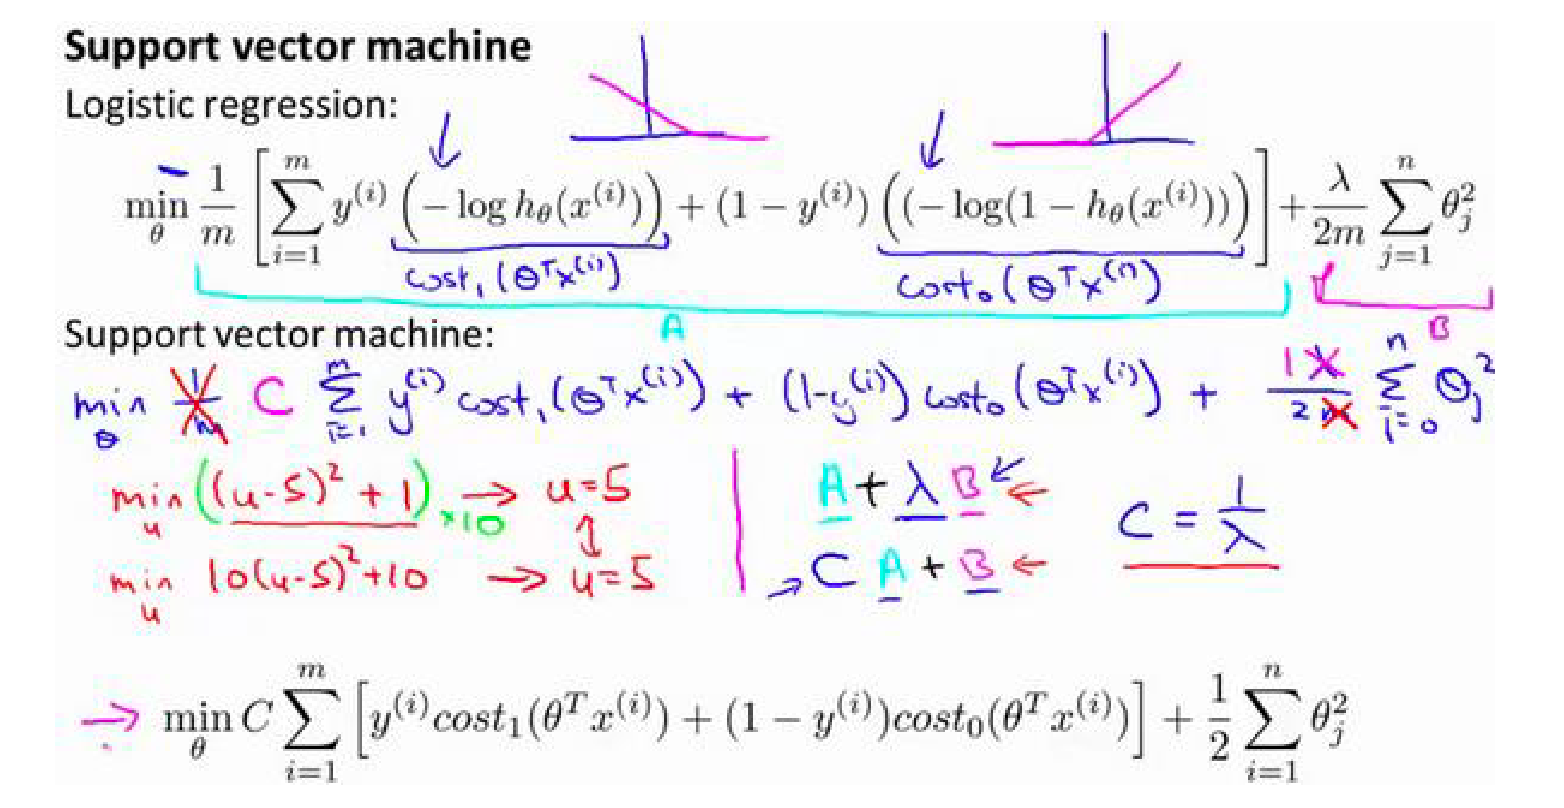 Support vector machine
Logistic regression:
min_θ 1/m [ ∑_{i=1}^{m} y^{(i)} (− log h_θ(x^{(i)})) + (1 − y^{(i)}) ((− log(1 − h_θ(x^{(i)}))) ] + λ/2m ∑_{j=1}^{n} θ_j^2
cost₁(θᵀx^{(i)}) cost₀(θᵀx^{(i)})
A B
Support vector machine:
min_θ 1/m C ∑_{i=1}^{m} y^{(i)} cost₁(θᵀx^{(i)}) + (1-y^{(i)}) cost₀(θᵀx^{(i)}) + 1λ/2m ∑_{i=0}^{n} θ_j^2
min_u ((u-5)² + 1) ×10 → u=5
↕
min_u 10(u-5)²+10 → u=5
A + λ B ←
→ C A + B ←
C = 1/λ
→ min_θ C ∑_{i=1}^{m} [ y^{(i)} cost₁(θᵀx^{(i)}) + (1 − y^{(i)}) cost₀(θᵀx^{(i)}) ] + 1/2 ∑_{i=1}^{n} θ_j^2